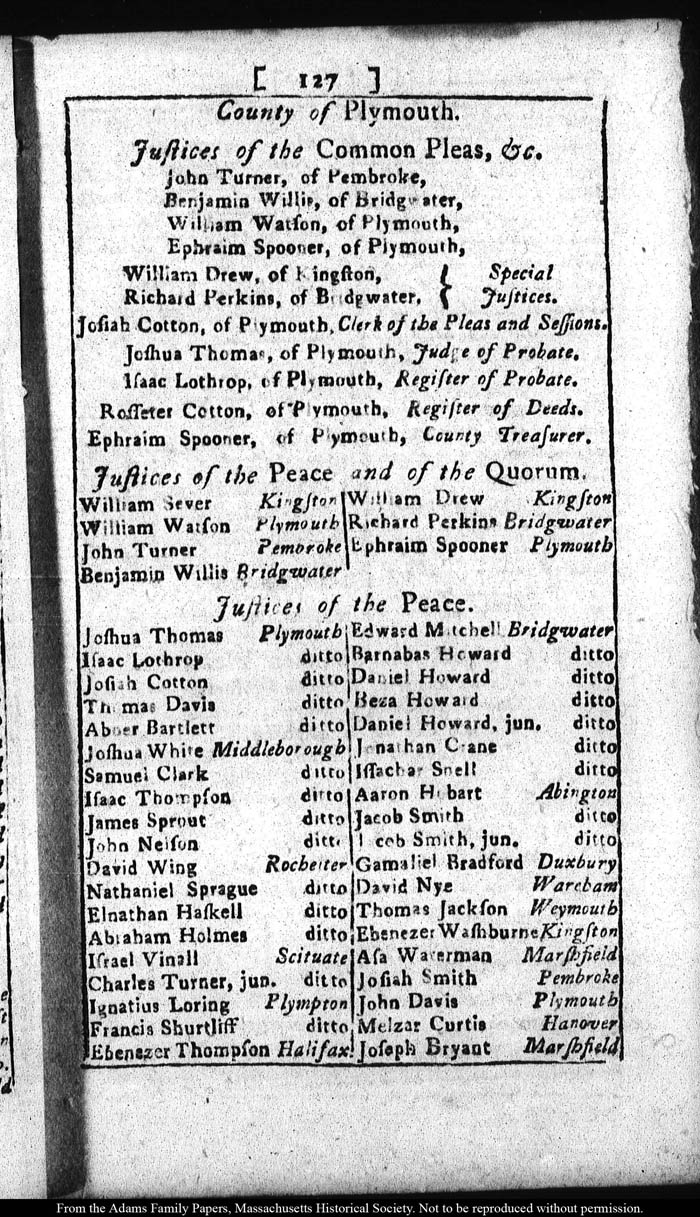 [ 127 ]
County of Plymouth.
Juſtices of the Common Pleas, &c.
John Turner, of Pembroke,
Benjamin Willis, of Bridgwater,
William Watſon, of Plymouth,
Ephraim Spooner, of Plymouth,
William Drew, of Kingſton, { Special
Richard Perkins, of Bridgwater, { Juſtices.
Joſiah Cotton, of Plymouth, Clerk of the Pleas and Seſſions.
Joſhua Thomas, of Plymouth, Judge of Probate.
Iſaac Lothrop, of Plymouth, Regiſter of Probate.
Roſſeter Cotton, of Plymouth, Regiſter of Deeds.
Ephraim Spooner, of Plymouth, County Treaſurer.
Juſtices of the Peace and of the Quorum.
William Sever Kingſton
William Watſon Plymouth
John Turner Pembroke
Benjamin Willis Bridgwater
William Drew Kingſton
Richard Perkins Bridgwater
Ephraim Spooner Plymouth
Juſtices of the Peace.
Joſhua Thomas Plymouth
Iſaac Lothrop ditto
Joſiah Cotton ditto
Thomas Davis ditto
Abner Bartlett ditto
Joſhua White Middleborough
Samuel Clark ditto
Iſaac Thompſon ditto
James Sprout ditto
John Nelſon ditto
David Wing Rocheſter
Nathaniel Sprague ditto
Elnathan Haſkell ditto
Abraham Holmes ditto
Iſrael Vinall Scituate
Charles Turner, jun. ditto
Ignatius Loring Plympton
Francis Shurtliff ditto
Ebenezer Thompſon Halifax
Edward Mitchell Bridgwater
Barnabas Howard ditto
Daniel Howard ditto
Beza Howard ditto
Daniel Howard, jun. ditto
Jonathan Crane ditto
Iſſachar Snell ditto
Aaron Hobart Abington
Jacob Smith ditto
Jacob Smith, jun. ditto
Gamaliel Bradford Duxbury
David Nye Wareham
Thomas Jackſon Weymouth
Ebenezer Waſhburne Kingſton
Aſa Waterman Marſhfield
Joſiah Smith Pembroke
John Davis Plymouth
Melzar Curtis Hanover
Joſeph Bryant Marſhfield
From the Adams Family Papers, Massachusetts Historical Society. Not to be reproduced without permission.